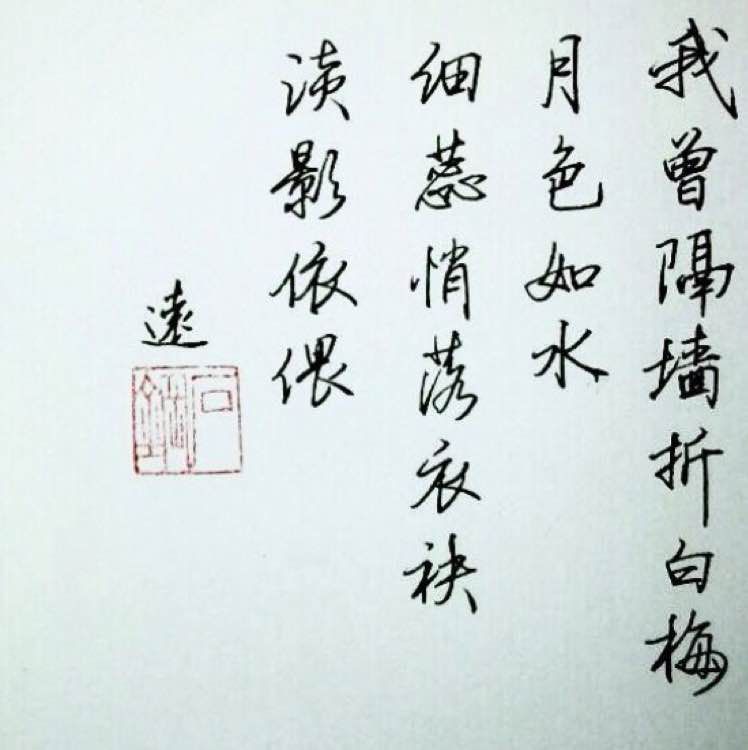 我曾隔墙折白梅
月色如水
细蕊悄落衣袂
淡影依偎
遠